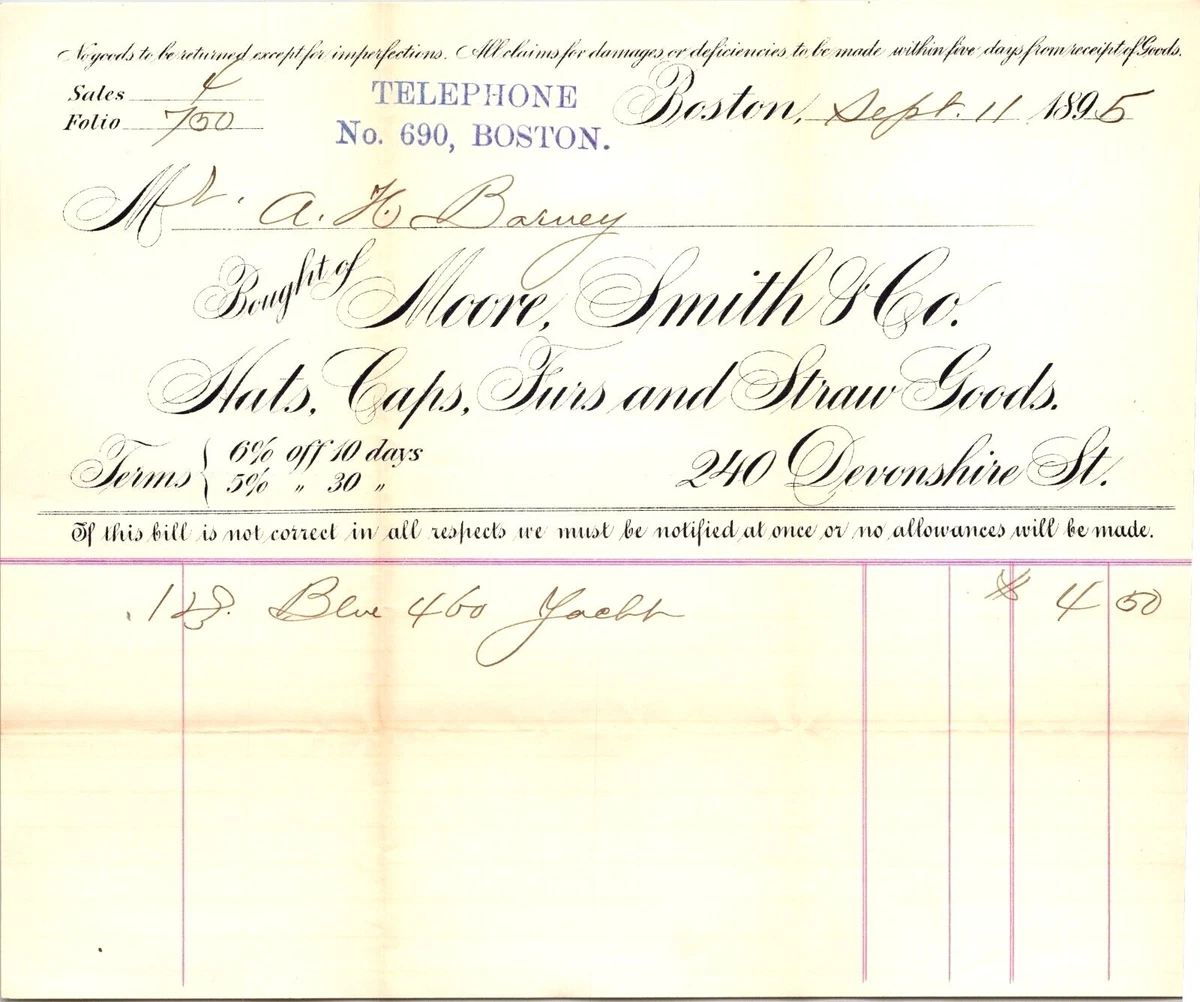 No goods to be returned except for imperfections. All claims for damages or deficiencies to be made within five days from receipt of Goods.
Sales 4
Folio 750
TELEPHONE
No. 690, BOSTON.
Boston, Sept. 11 1895
Mr. A. H. Barney
Bought of Moore, Smith & Co.
Hats, Caps, Furs and Straw Goods.
Terms { 6% off 10 days
5% " 30 "
240 Devonshire St.
If this bill is not correct in all respects we must be notified at once or no allowances will be made.
Blue 460 Yacht $ 4 50